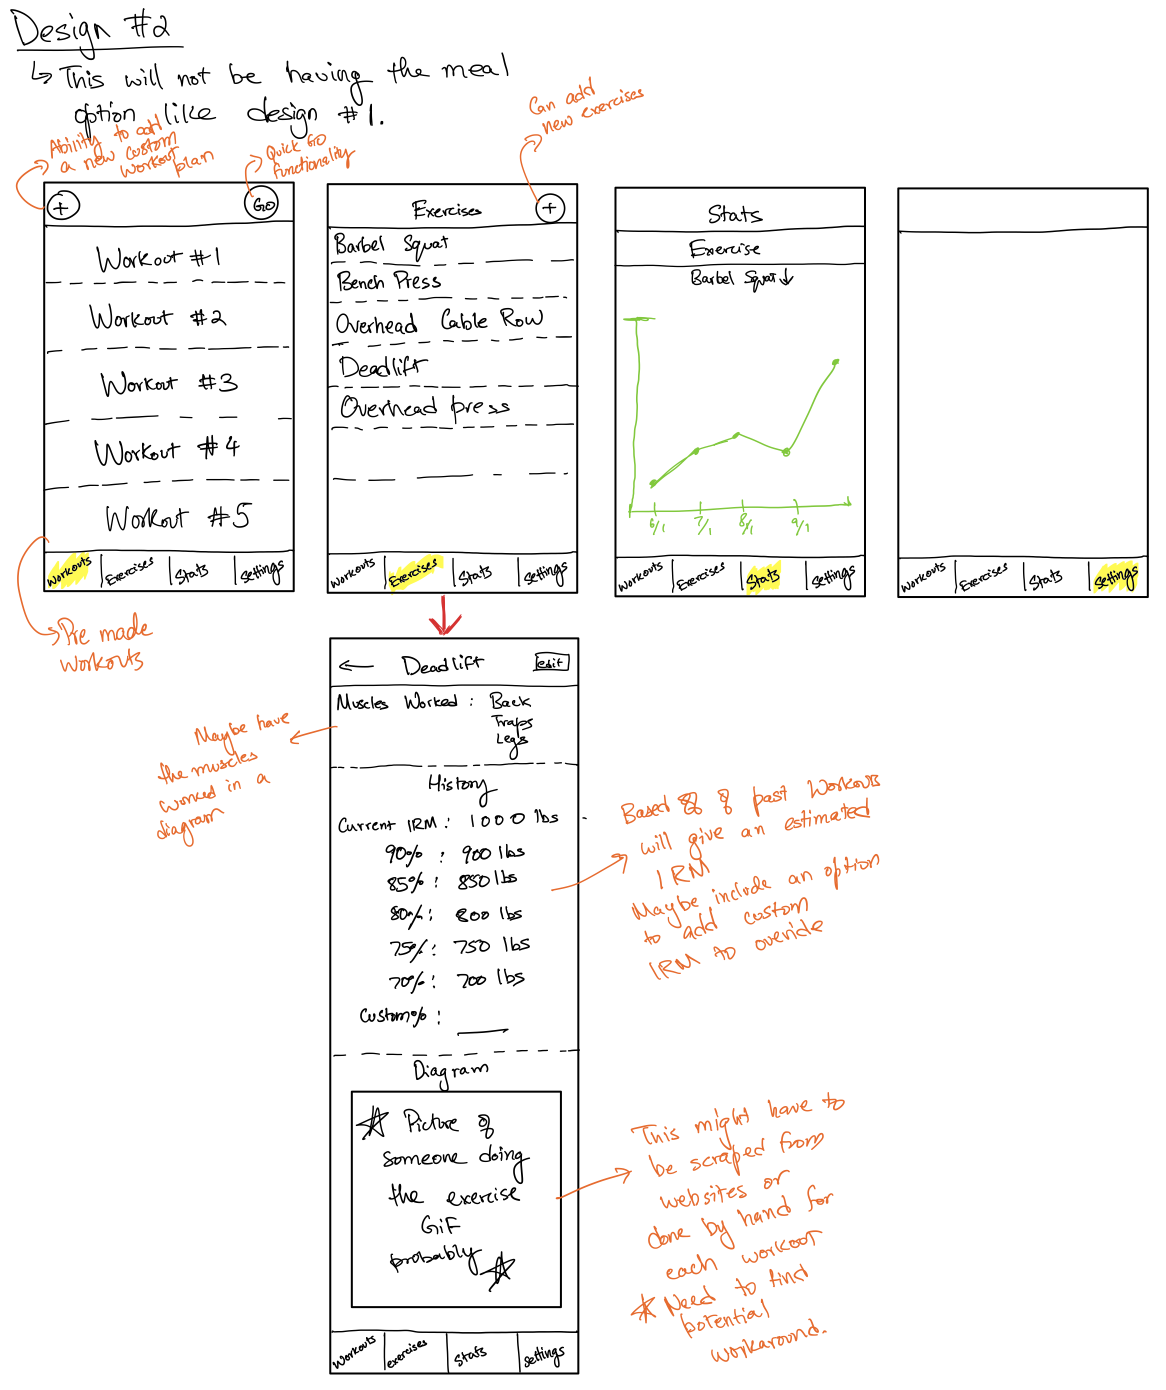 Design #2
↳ This will not be having the meal
option like design #1.
Ability to add
a new custom
workout plan
Quick GO
functionality
Can add
new exercises
+
GO
Workout #1
Workout #2
Workout #3
Workout #4
Workout #5
Workouts
Exercises
Stats
Settings
Pre made
workouts
Exercises
+
Barbel Squat
Bench Press
Overhead Cable Row
Deadlift
Overhead press
Workouts
Exercises
Stats
Settings
Stats
Exercise
Barbel Squat ↓
6/1
7/1
8/1
9/1
Workouts
Exercises
Stats
Settings
Workouts
Exercises
Stats
Settings
← Deadlift edit
Muscles Worked : Back
Traps
Legs
Maybe have
the muscles
worked in a
diagram
History
Current 1RM : 1000 lbs
90% : 900 lbs
85% : 850 lbs
80% : 800 lbs
75% : 750 lbs
70% : 700 lbs
Custom% :
Based of past workouts
will give an estimated
1RM
Maybe include an option
to add custom
1RM to override
Diagram
Picture of
someone doing
the exercise
GiF
probably
This might have to
be scraped from
websites or
done by hand for
each workout
Need to find
potential
workaround.
Workouts
exercises
Stats
Settings